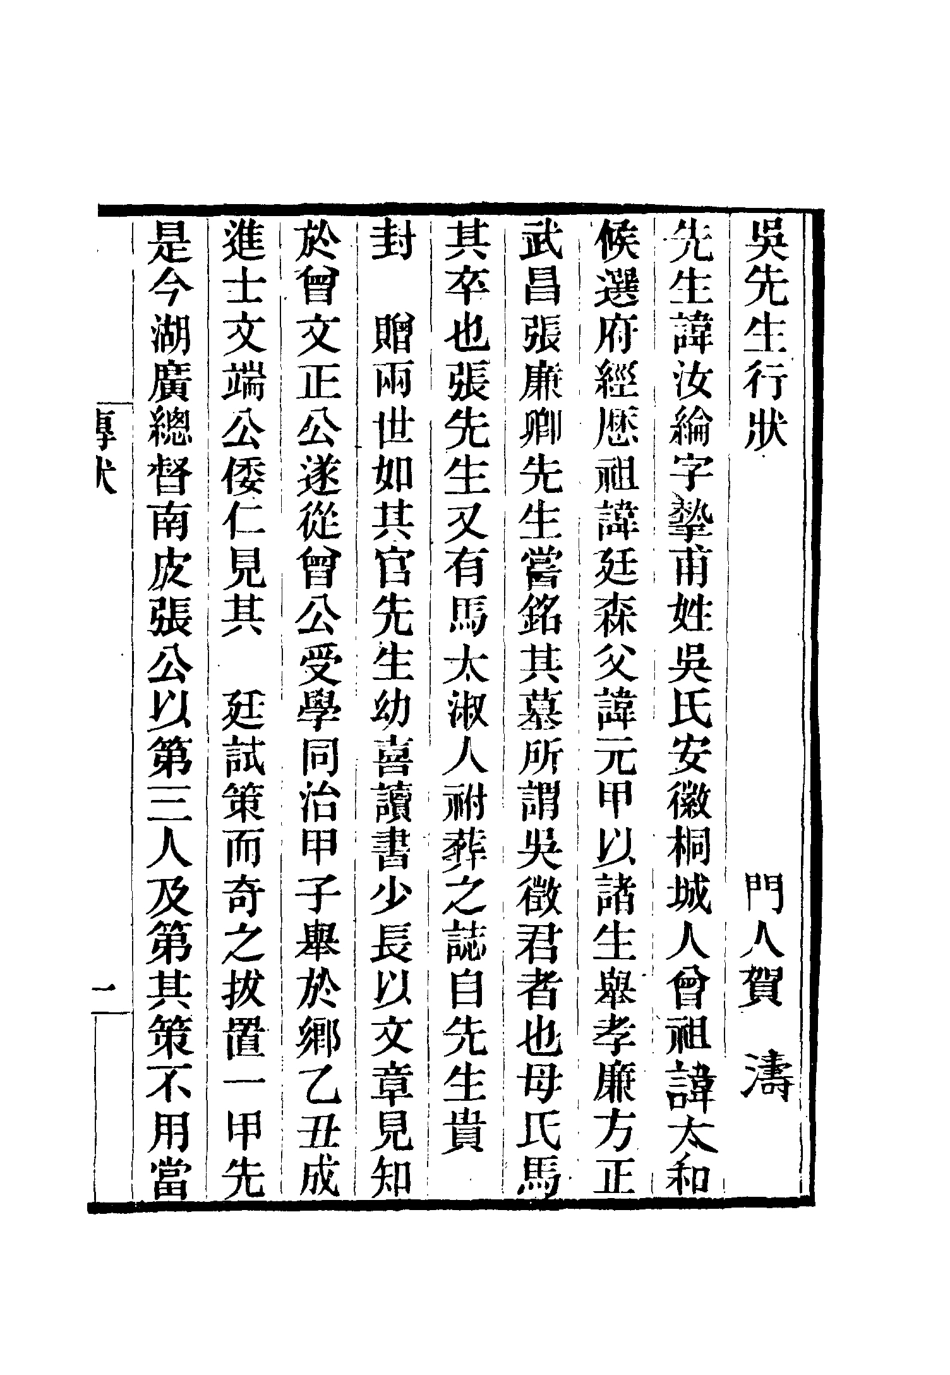 吳先生行狀　　　　　　　　　門人賀　濤
先生諱汝綸字摯甫姓吳氏安徽桐城人曾祖諱太和
候選府經歷祖諱廷森父諱元甲以諸生舉孝廉方正
武昌張廉卿先生嘗銘其墓所謂吳徵君者也母氏馬
其卒也張先生又有馬太淑人祔葬之誌自先生貴
封　贈兩世如其官先生幼喜讀書少長以文章見知
於曾文正公遂從曾公受學同治甲子舉於鄉乙丑成
進士文端公倭仁見其　廷試策而奇之拔置一甲先
是今湖廣總督南皮張公以第三人及第其策不用當
專狀
一